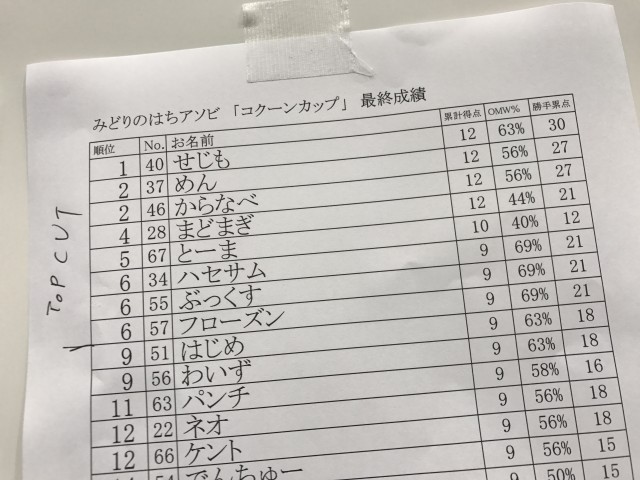 みどりのはちアソビ 「コクーンカップ」 最終成績
順位 No. お名前 累計得点 OMW% 勝手累点
1 40 せじも 12 63% 30
2 37 めん 12 56% 27
2 46 からなべ 12 56% 27
4 28 まどまぎ 12 44% 21
5 67 とーま 10 40% 12
6 34 ハセサム 9 69% 21
6 55 ぶっくす 9 69% 21
6 57 フローズン 9 69% 21
9 51 はじめ 9 63% 18
9 56 わいず 9 63% 18
11 63 パンチ 9 58% 16
12 22 ネオ 9 56% 18
12 66 ケント 9 56% 18
54 でんちゅー 9 56% 15
9 50% 15
TOP CUT